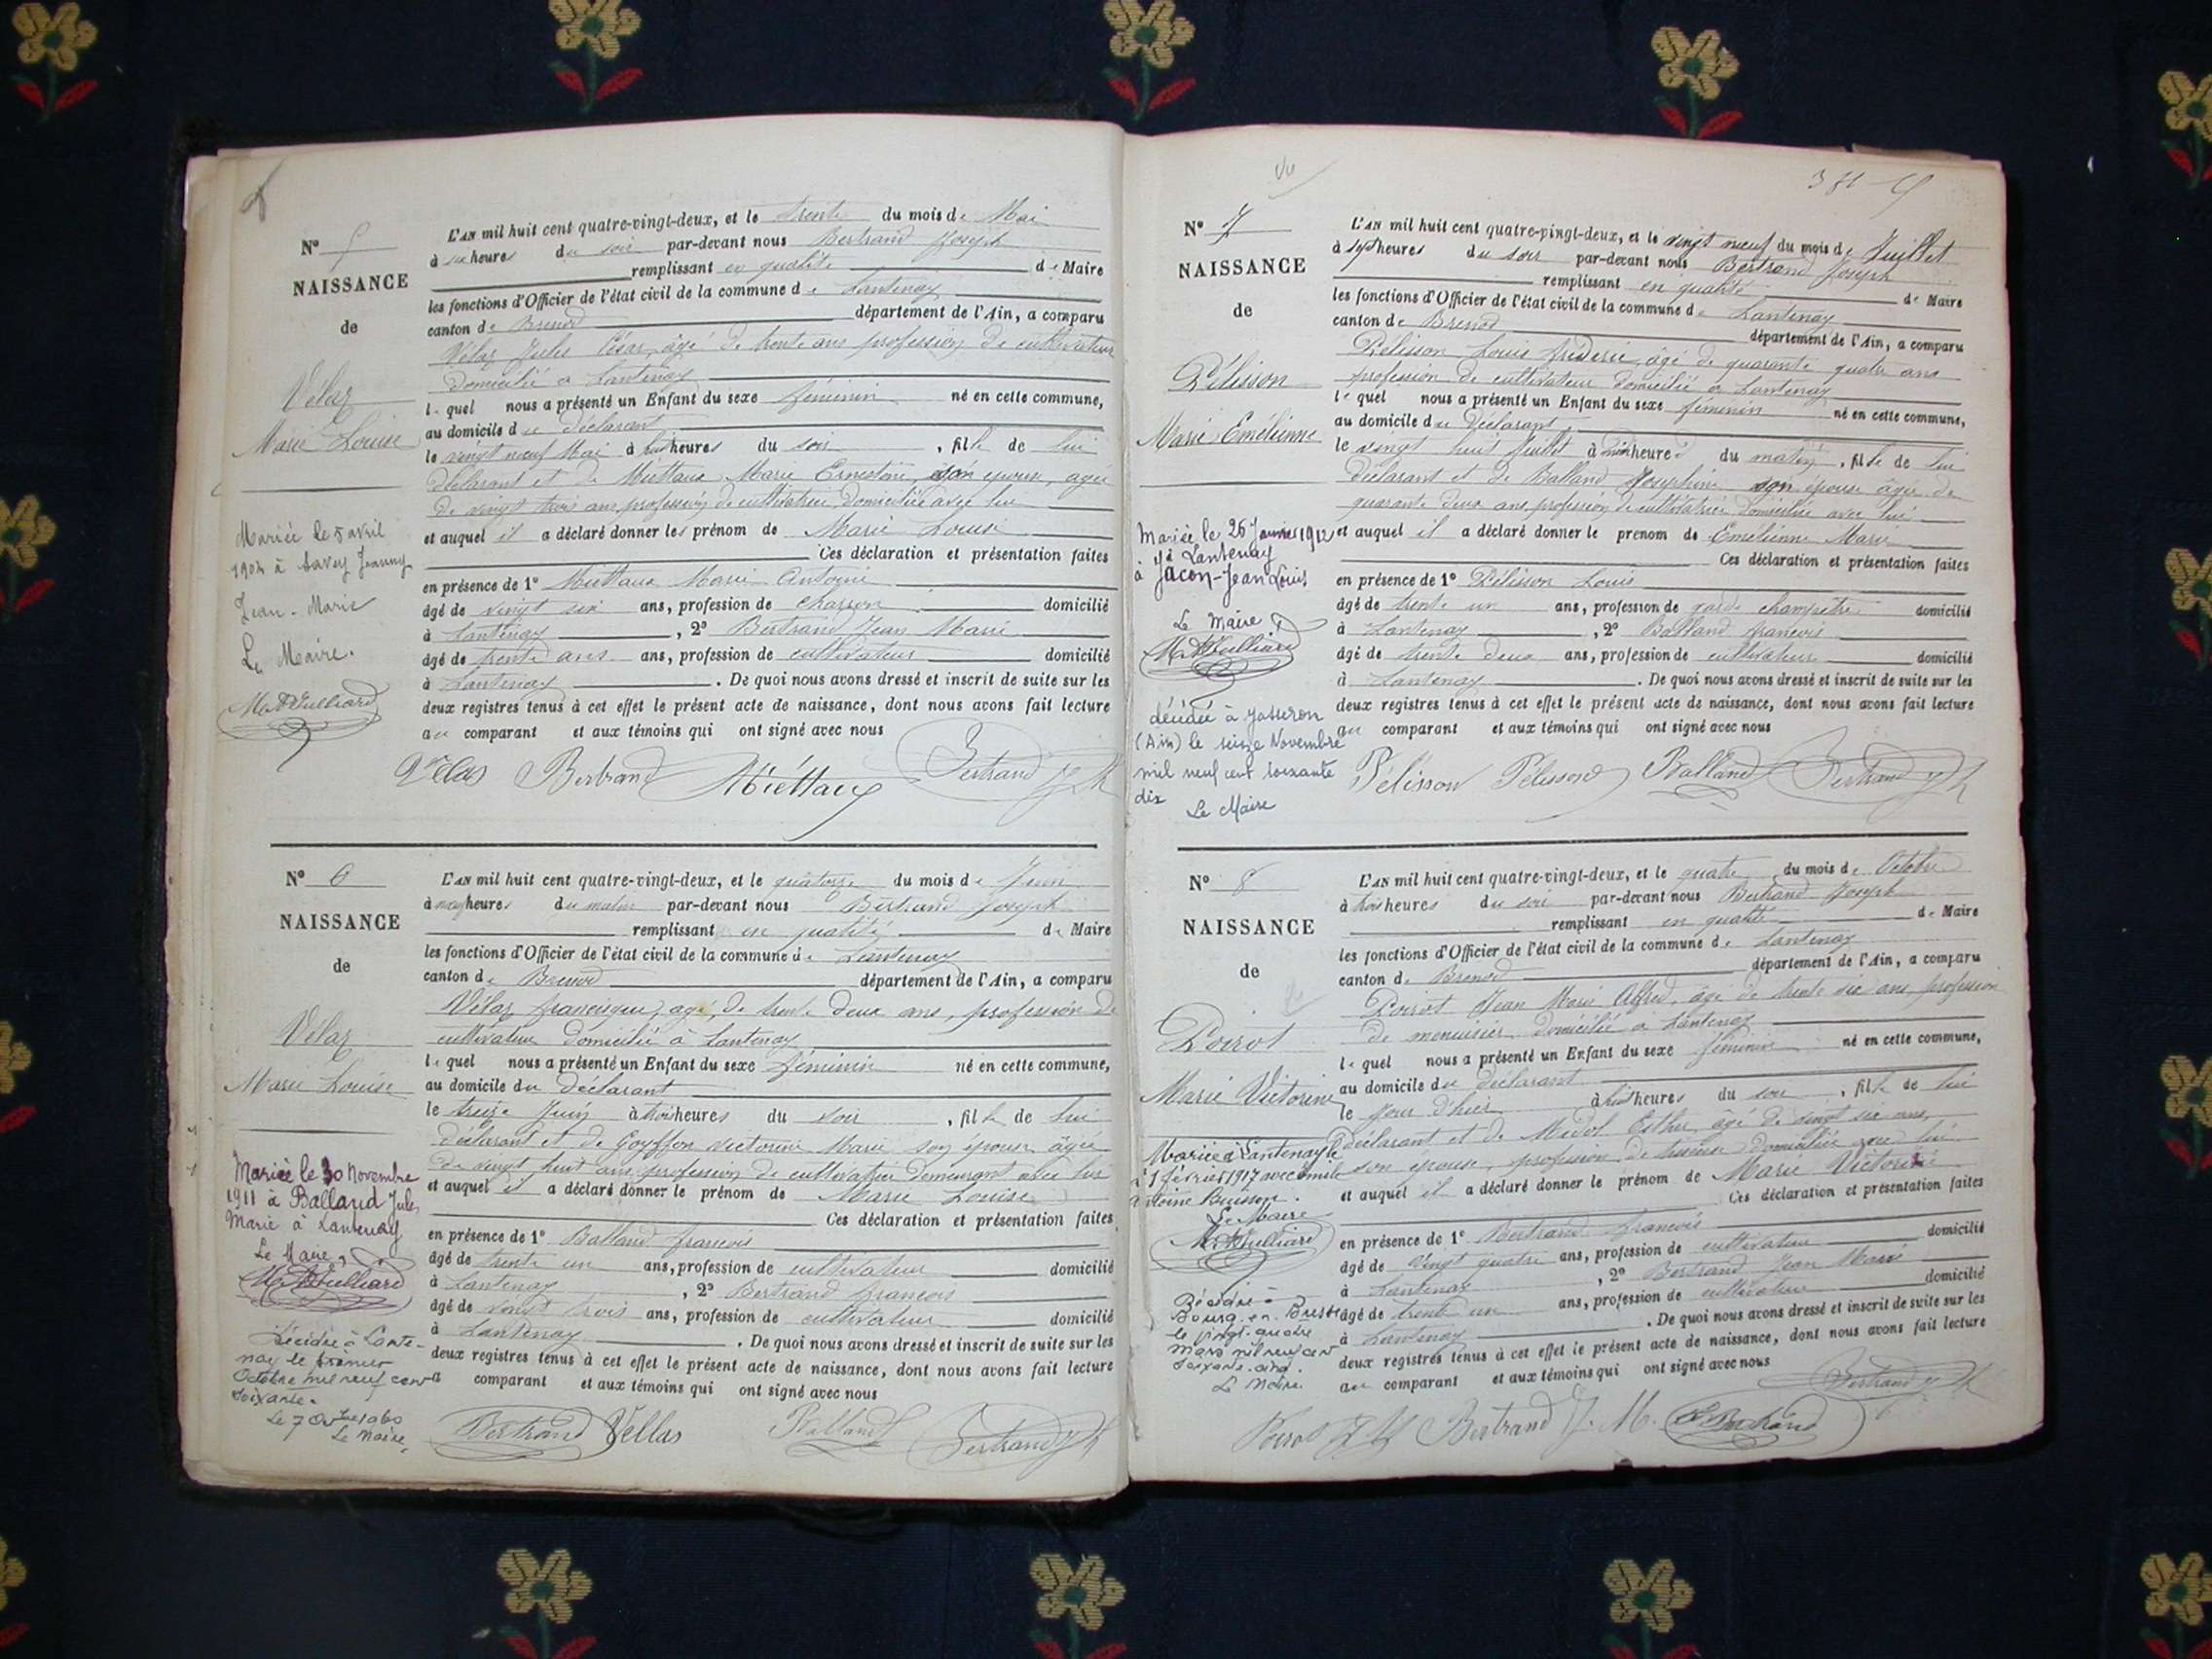 Nº 5
NAISSANCE
de
Vélaz
Marie Louise
Mariée le 5 avril
1902 à Savey Jeanny
Jean-Marie
Le Maire.
L'AN mil huit cent quatre-vingt-deux, et le trente du mois de Mai
à six heures du soir par-devant nous Bertrand Joseph
remplissant en qualité de Maire
les fonctions d'Officier de l'état civil de la commune de Lantenay
canton de Brenod département de l'Ain, a comparu
Vélaz Jules César, âgé de trente ans profession de cultivateur
domicilié à Lantenay
le quel nous a présenté un Enfant du sexe féminin né en cette commune,
au domicile du déclarant
le vingt neuf Mai à huit heures du soir, fille de lui
déclarant et de Miettaux Marie Ernestine, son épouse, agée
de vingt trois ans profession de cultivatrice domiciliée avec lui
et auquel il a déclaré donner les prénom de Marie Louise
Ces déclaration et présentation faites
en présence de 1º Miettaux Marie Antoine
âgé de vingt six ans, profession de charron domicilié
à Lantenay, 2º Bertrand Jean Marie
âgé de trente ans ans, profession de cultivateur domicilié
à Lantenay. De quoi nous avons dressé et inscrit de suite sur les
deux registres tenus à cet effet le présent acte de naissance, dont nous avons fait lecture
au comparant et aux témoins qui ont signé avec nous
Vélas Bertrand Miettaux Bertrand Jh
Nº 6
NAISSANCE
de
Vélaz
Marie Louise
Mariée le 30 Novembre
1911 à Balland Jules
Marie à Lantenay
Le Maire
Décédée à Lante-
nay le premier
Octobre mil neuf cent
soixante.
Le 7 Oct 1960
Le Maire,
L'AN mil huit cent quatre-vingt-deux, et le quatorze du mois de Juin
à heures du matin par-devant nous Bertrand Joseph
remplissant en qualité de Maire
les fonctions d'Officier de l'état civil de la commune de Lantenay
canton de Brenod département de l'Ain, a comparu
Vélaz francisque, agé, de trente deux ans, profession de
cultivateur domicilié à Lantenay
le quel nous a présenté un Enfant du sexe féminin né en cette commune,
au domicile du déclarant
le treize Juin à trois heures du soir, fille de lui
déclarant et de Goyffon Victorine Marie son épouse âgée
de vingt huit ans profession de cultivatrice demeurant avec lui
et auquel il a déclaré donner le prénom de Marie Louise
Ces déclaration et présentation faites
en présence de 1º Balland francois
âgé de trente un ans, profession de cultivateur domicilié
à Lantenay, 2º Bertrand francois
âgé de vingt trois ans, profession de cultivateur domicilié
à Lantenay. De quoi nous avons dressé et inscrit de suite sur les
deux registres tenus à cet effet le présent acte de naissance, dont nous avons fait lecture
comparant et aux témoins qui ont signé avec nous
Bertrand Vellas Balland Bertrand Jh
Nº 7
NAISSANCE
de
Pélisson
Marie Emélienne
Mariée le 26 Janvier 1912
à Lantenay
à Jacon-Jean Louis
Le Maire
décédée à Jasseron
(Ain) le seize Novembre
mil neuf cent soixante
dix
Le Maire
L'AN mil huit cent quatre-vingt-deux, et le vingt neuf du mois de Juillet
à sept heures du soir par-devant nous Bertrand Joseph
remplissant en qualité de Maire
les fonctions d'Officier de l'état civil de la commune de Lantenay
canton de Brenod département de l'Ain, a comparu
Pélisson Louis frédéric, âgé de quarante quatre ans
profession de cultivateur domicilié à Lantenay
le quel nous a présenté un Enfant du sexe féminin né en cette commune,
au domicile du Déclarant
le vingt huit Juillet à heures du matin, fille de lui
déclarant et de Balland Joséphine son épouse âgée de
quarante deux ans, profession de cultivatrice domiciliée avec lui
et auquel il a déclaré donner le prenom de Emélienne Marie
Ces déclaration et présentation faites
en présence de 1º Pélisson Louis
âgé de trente un ans, profession de garde champêtre domicilié
à Lantenay, 2º Balland francois
âgé de trente deux ans, profession de cultivateur domicilié
à Lantenay. De quoi nous avons dressé et inscrit de suite sur les
deux registres tenus à cet effet le présent acte de naissance, dont nous avons fait lecture
au comparant et aux témoins qui ont signé avec nous
Pélisson Pélisson Balland Bertrand Jh
Nº 8
NAISSANCE
de
Poirot
Marie Victorine
Mariée à Lantenay le
1 février 1917 avec Emile
Antoine Buisson.
Le Maire
Décédée à
Bourg-en-Bresse
le vingt-quatre
mars mil neuf cent
soixante-cinq.
Le Maire
L'AN mil huit cent quatre-vingt-deux, et le quatre du mois de Octobre
à trois heures du soir par-devant nous Bertrand Joseph
remplissant en qualité de Maire
les fonctions d'Officier de l'état civil de la commune de Lantenay
canton de Brenod département de l'Ain, a comparu
Poirot Jean Marie Alfred, âgé de trente six ans, profession
de menuisier domicilié à Lantenay
le quel nous a présenté un Enfant du sexe féminin né en cette commune,
au domicile du déclarant
le jour d'hier à huit heures du soir, fille de lui
déclarant et de Midol Esther, âgé de vingt six ans,
son épouse, profession de domiciliée avec lui
et auquel il a déclaré donner le prénom de Marie Victorine
Ces déclaration et présentation faites
en présence de 1º Bertrand francois domicilié
âgé de vingt quatre ans, profession de cultivateur
à Lantenay, 2º Bertrand Jean Marie
âgé de trente un ans, profession de cultivateur domicilié
à Lantenay. De quoi nous avons dressé et inscrit de suite sur les
deux registres tenus à cet effet le présent acte de naissance, dont nous avons fait lecture
au comparant et aux témoins qui ont signé avec nous
Bertrand Jh
Poirot Bertrand J. M. Bertrand